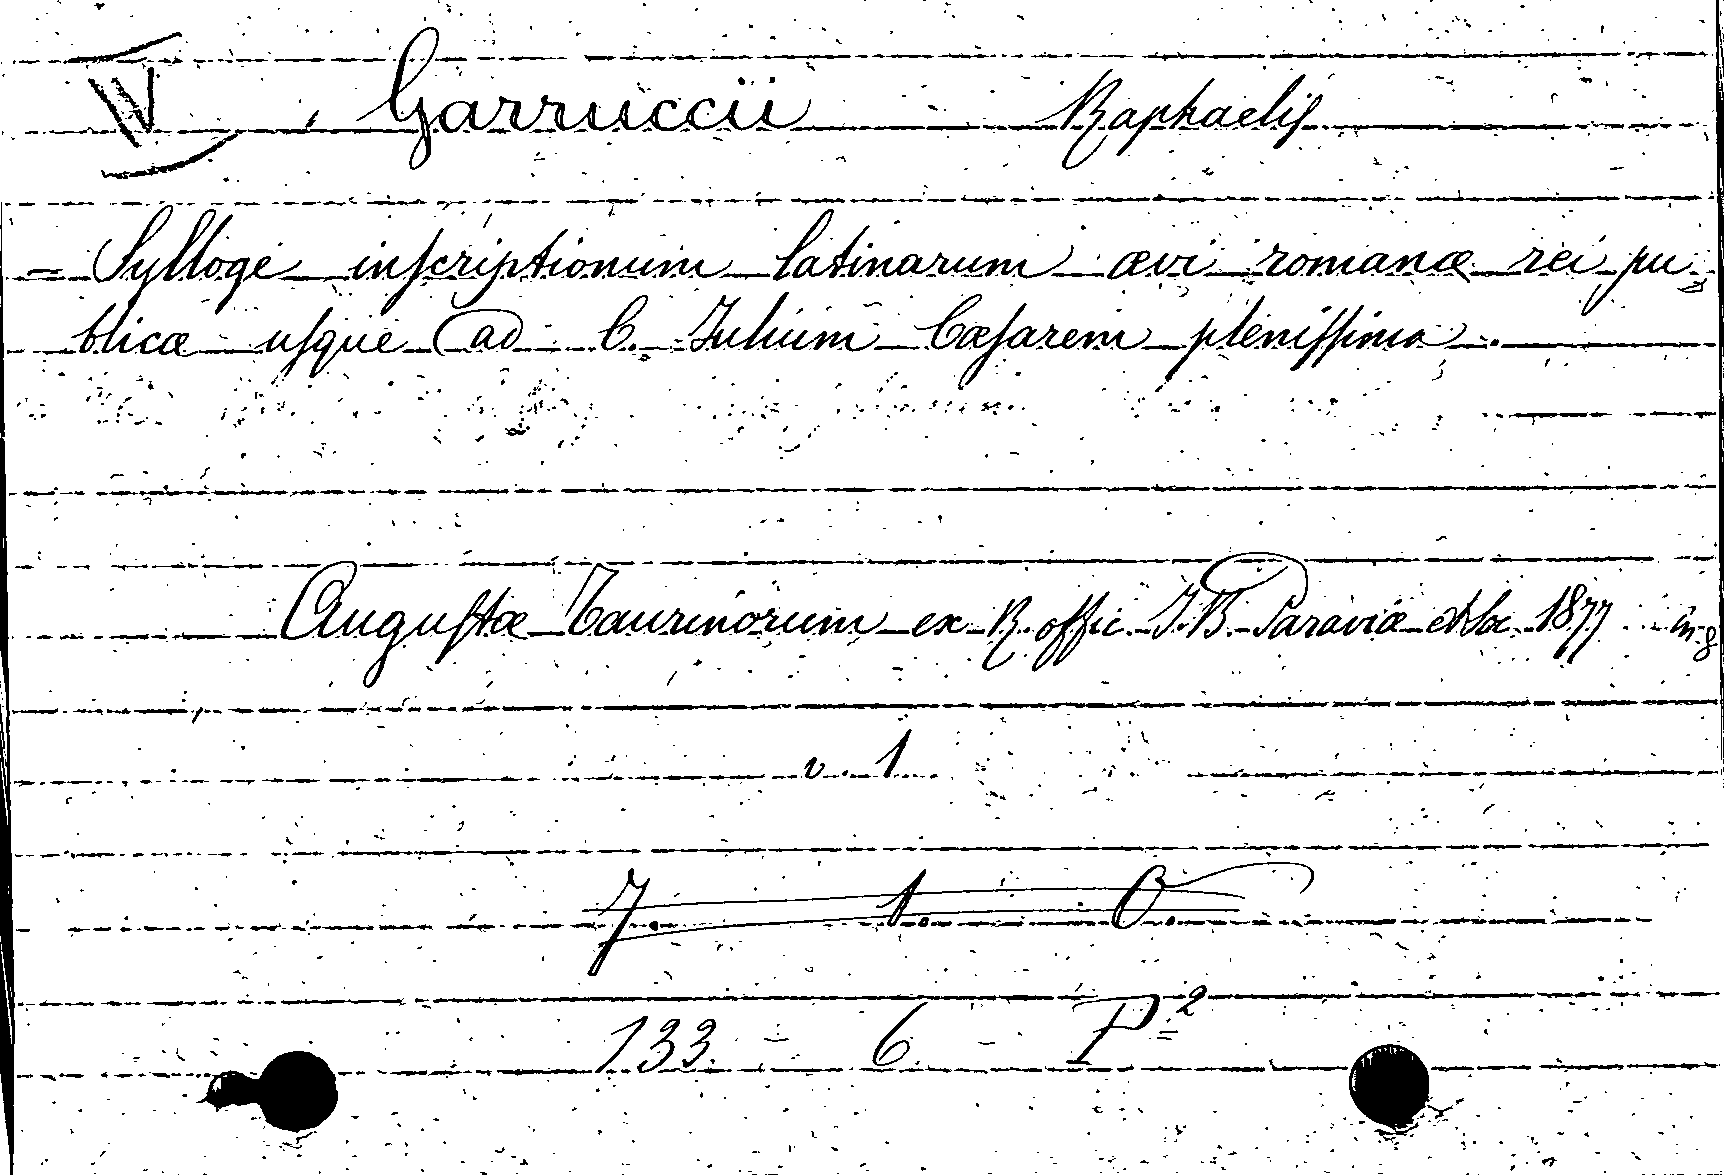 IV Garruccii Raphaelis
= Sylloge inscriptionum latinarum ævi romanæ rei pu=
blicæ usque ad C. Julium Cæsarem plenissima.
Augustæ Taurinorum ex R. offic. J.B. Paraviæ 1877 in 8
v. 1
J. 1. O.
133. 6. P²